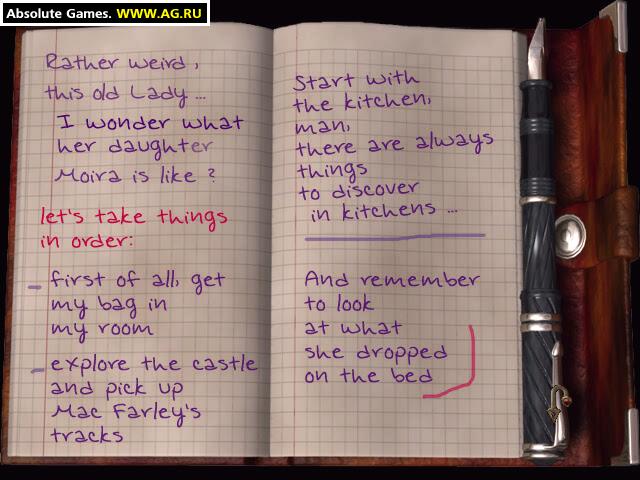 Absolute Games. WWW.AG.RU
Rather weird,
this old Lady ...
I wonder what
her daughter
Moira is like ?
let's take things
in order:
- first of all, get
my bag in
my room
- explore the castle
and pick up
Mac Farley's
tracks
Start with
the kitchen,
man,
there are always
things
to discover
in kitchens ...
And remember
to look
at what
she dropped
on the bed